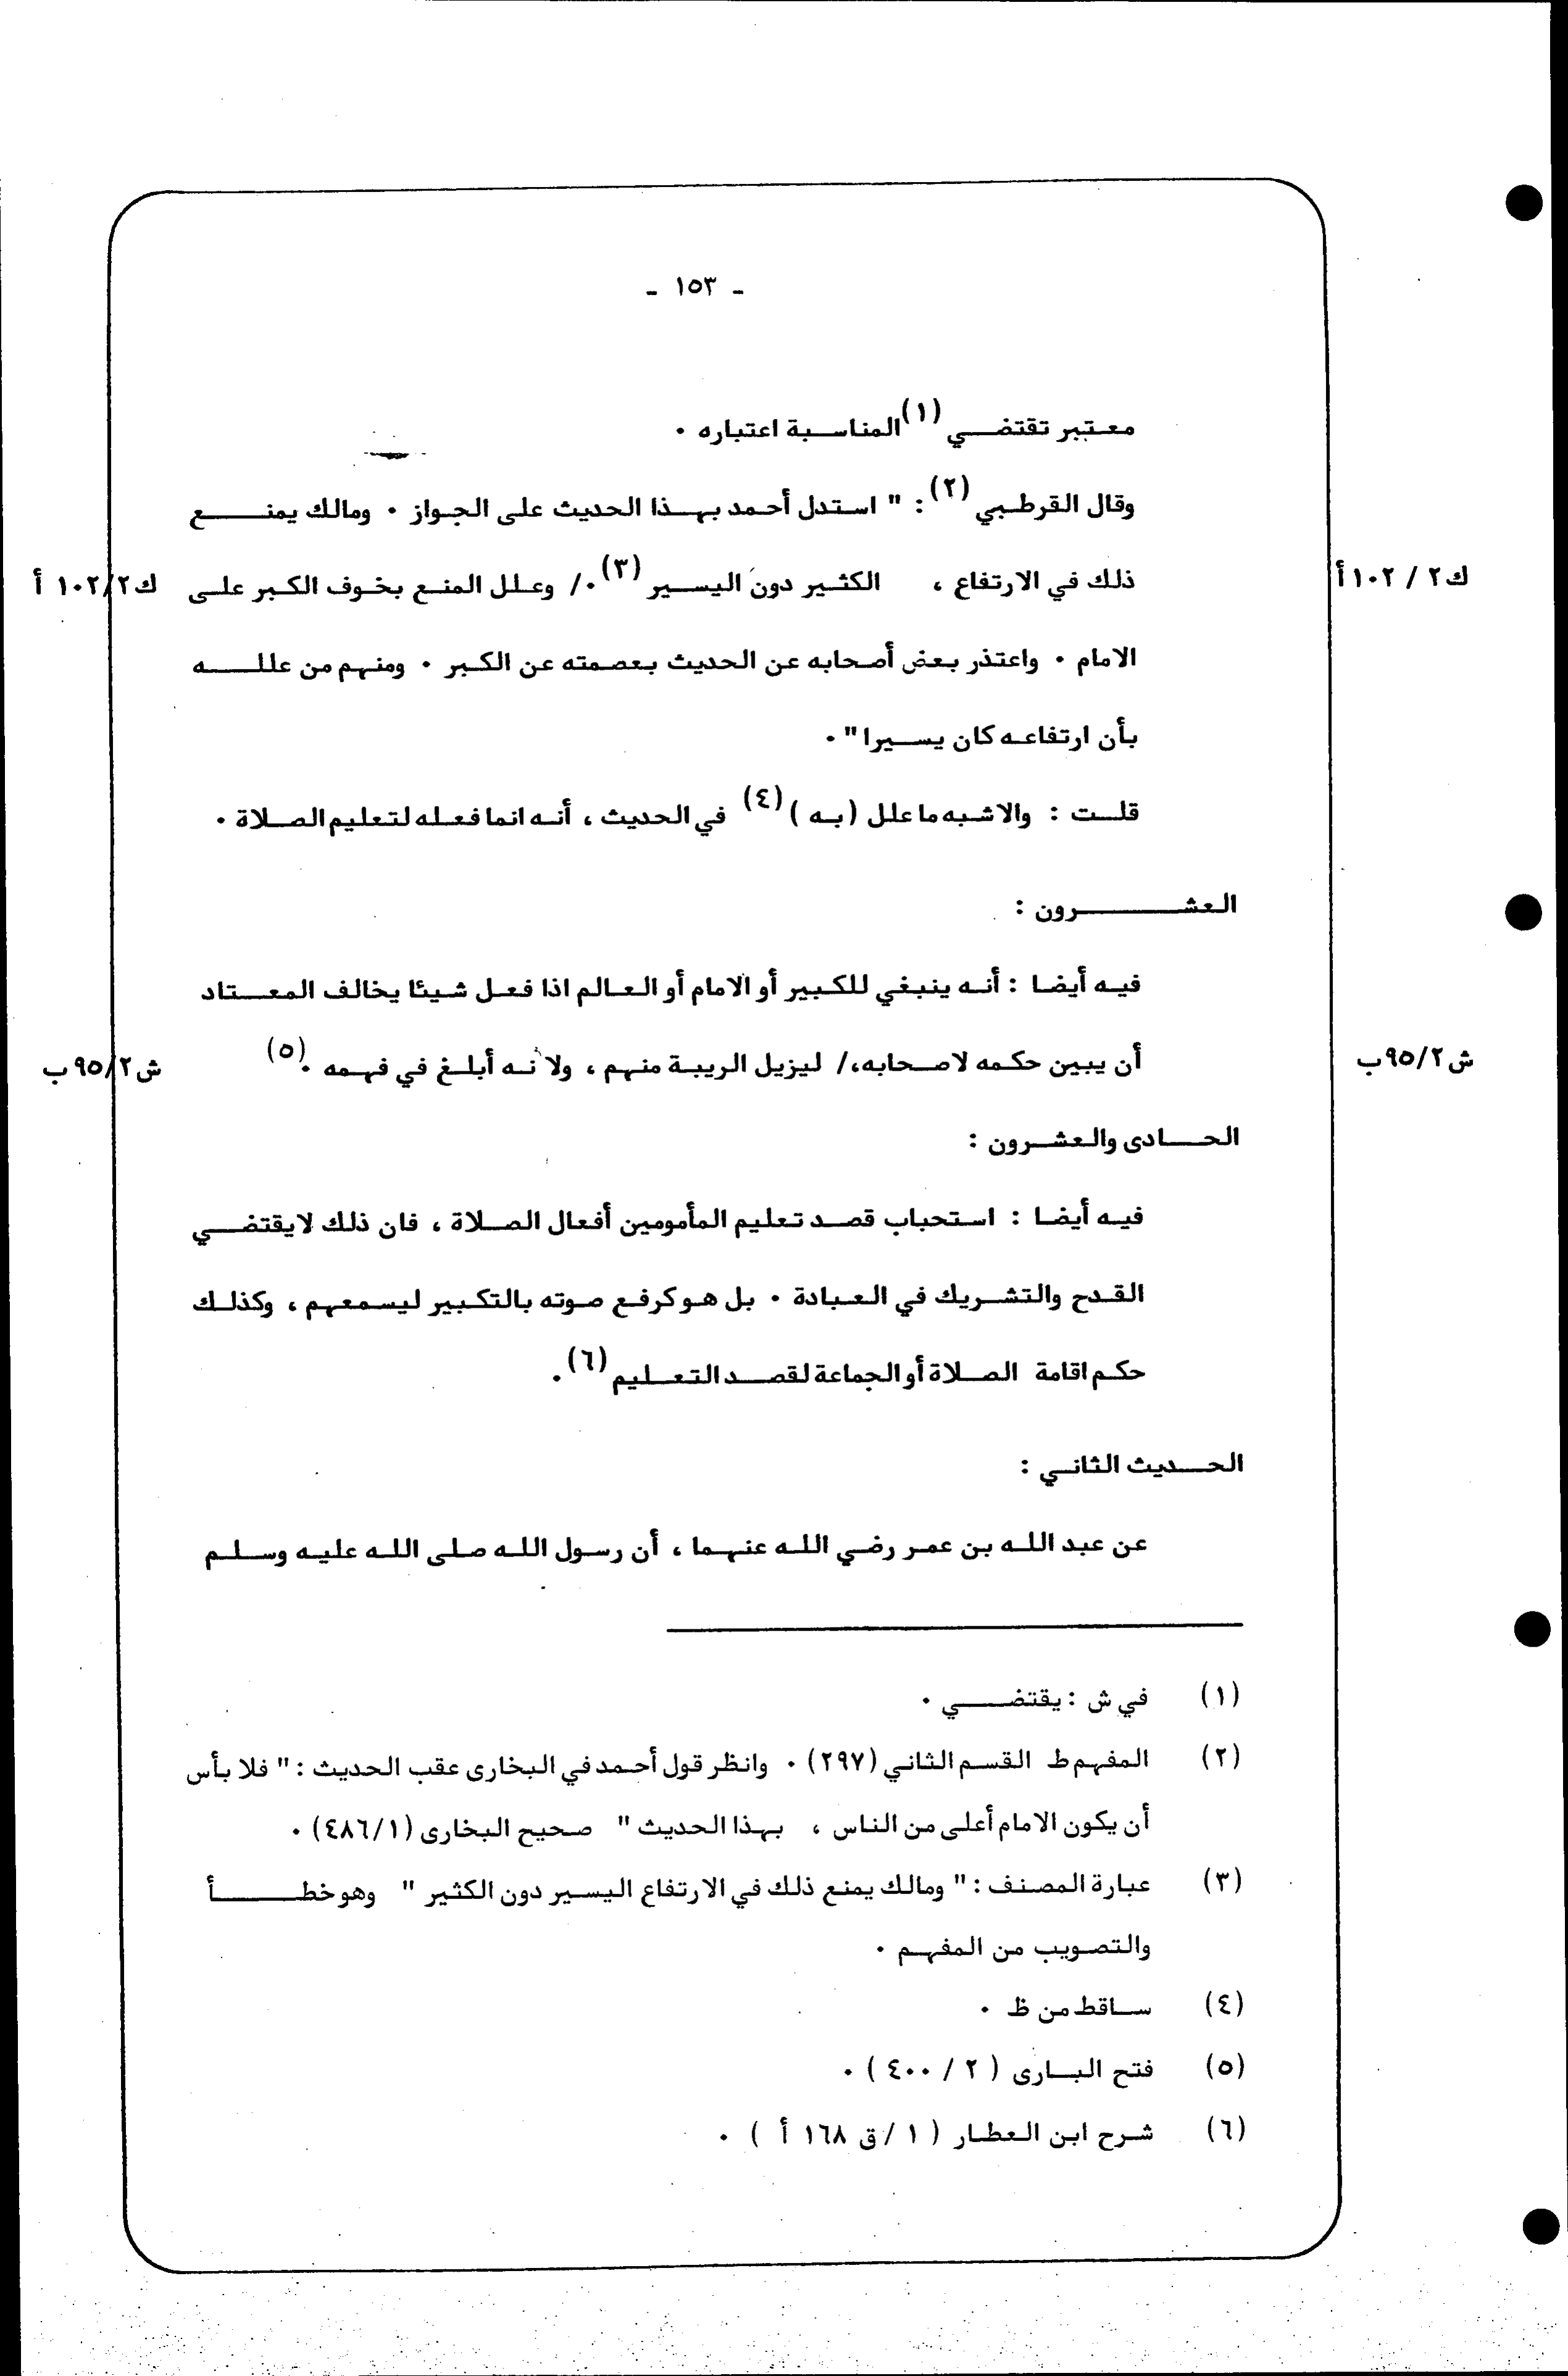 - ١٥٣ -
معتبر تقتضي (١) المناسبة اعتباره .
وقال القرطبي (٢) : " استدل أحمد بهذا الحديث على الجواز . ومالك يمنع
ك٢ / ١٠٢أ ذلك في الارتفاع ، الكثير دون اليسير (٣) ./ وعلل المنع بخوف الكبر على ك٢/١٠٢ أ
الامام . واعتذر بعض أصحابه عن الحديث بعصمته عن الكبر . ومنهم من علله
بأن ارتفاعه كان يسيرا " .
قلت : والاشبه ما علل (به ) (٤) في الحديث ، أنه انما فعله لتعليم الصلاة .
العشرون :
فيه أيضا : أنه ينبغي للكبير أو الامام أو العالم اذا فعل شيئا يخالف المعتاد
ش٩٥/٢ب أن يبين حكمه لاصحابه،/ ليزيل الريبة منهم ، ولانه أبلغ في فهمه .(٥) ش٩٥/٢ب
الحادى والعشرون :
فيه أيضا : استحباب قصد تعليم المأمومين أفعال الصلاة ، فان ذلك لايقتضي
القدح والتشريك في العبادة . بل هو كرفع صوته بالتكبير ليسمعهم ، وكذلك
حكم اقامة الصلاة أو الجماعة لقصد التعليم (٦) .
الحديث الثاني :
عن عبد الله بن عمر رضي الله عنهما ، أن رسول الله صلى الله عليه وسلم
(١) في ش : يقتضي .
(٢) المفهم ط القسم الثاني (٢٩٧) . وانظر قول أحمد في البخارى عقب الحديث : " فلا بأس
أن يكون الامام أعلى من الناس ، بهذا الحديث " صحيح البخارى (٤٨٦/١) .
(٣) عبارة المصنف : " ومالك يمنع ذلك في الارتفاع اليسير دون الكثير " وهو خطأ
والتصويب من المفهم .
(٤) ساقط من ظ .
(٥) فتح البارى ( ٢ / ٤٠٠ ) .
(٦) شرح ابن العطار ( ١ / ق ١٦٨ أ ) .